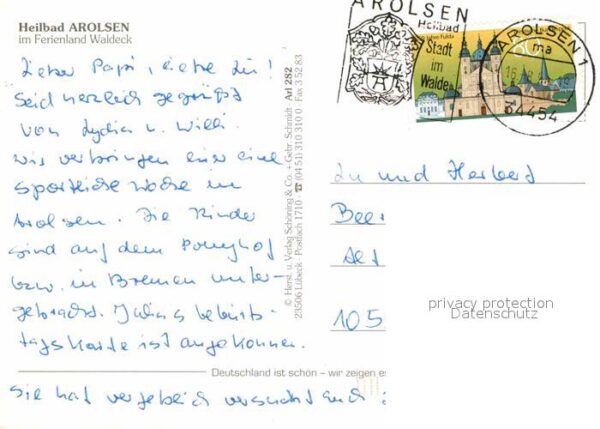 Heilbad AROLSEN
im Ferienland Waldeck
Lieber Papi, liebe Lu!
Seid herzlich gegrüßt
von Lydia u. Willi.
Wir verbringen hier eine
sportliche Woche in
Arolsen. Die Kinder
sind auf dem Ponyhof
bzw. in Bremen unter-
gebracht. Julias Geburts-
tagskarte ist angekommen.
Deutschland ist schön – wir zeigen es
Sie hat vergeblich versucht auch
© Herst. u. Verlag Schöning & Co. + Gebr. Schmidt · Arl 282
23506 Lübeck · Postfach 1710 · ☎ (04 51) 310 310 0 · Fax 3 52 83
AROLSEN
Heilbad
Stadt
im
Walde
AROLSEN 1
ma
34454
Lu und Herbert
Bee
105
privacy protection
Datenschutz